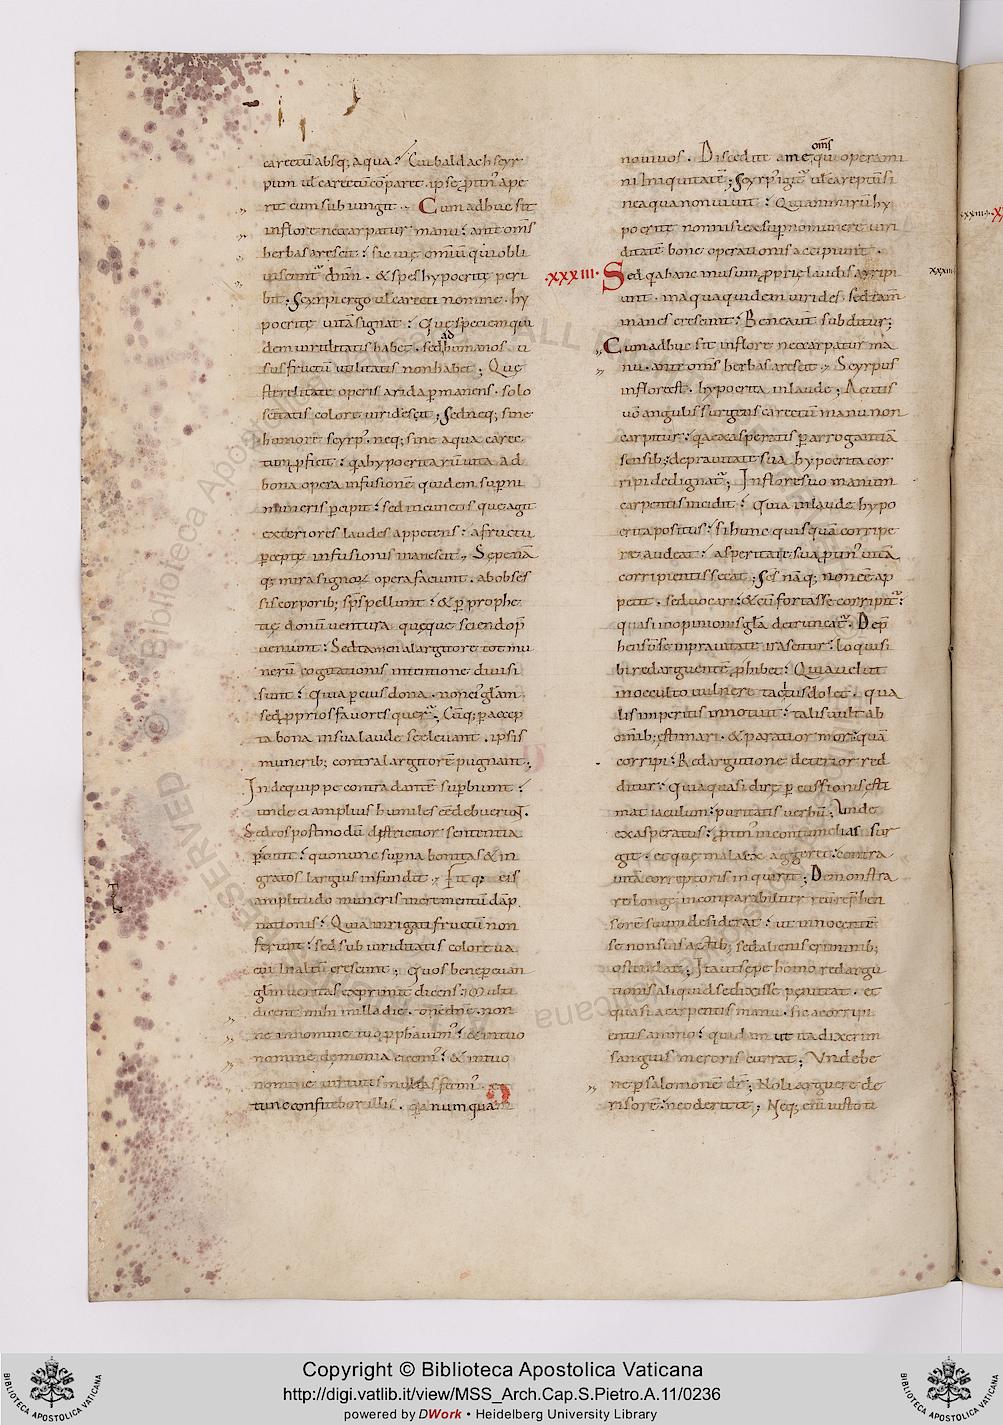 carectū absq; aqua? Cui baldach scyr
pum uł carectū cōparet. ipse ptin' ape
rit cum subiungit. Cum adhuc sit
in flore nec carpatur manu: ante om̄s
herbas arescit: sic uię omiū qui obli
uiscunt' dn̄m. & spes hypocritę peri
bit; Scyrpi ergo uł carecti nomine. hy
pocritę uitā signat: Quę speciem qui
dem uiriditatis habet. sed ad humanos u
sus fructū utilitatis non habet; Quę
sterilitate operis arida pmanens. solo
scītatis colore uiridescit; Sed neq; sine
humore scyrp'. neq; sine aqua carec
tum pficit: qa hypocritarū uita ad
bona opera infusionē quidem superni
muneris pcipit: sed in cunctis quę agit
exteriores laudes appetens. a fructu
pceptę infusionis inanescit. Sepe nā
q; mira signorum opera faciunt. ab obses
sis corporib; sp̄s pellunt: & p prophe
tię donū uentura quęque sciendo p
ueniunt: Sed tamen a largitore tot mu
nerū cogitationis intentione diuisi
sunt: Quia p eius dona. non ei' glām.
sed pprios fauores querunt; Cūq; p accep
ta bona in sua laude se eleuant. ipsis
munerib; contra largitorē pugnant.
Inde quippe contra dantē supbiunt:
unde ei amplius humiles eē debuerunt.
Sed eos postmodū districtior sententia
pcutit: quo nunc supna bonitas & in
gratos largius infundit. Fit q; eis
amplitudo muneris incrementū dāp
nationis: Quia inrigati fructum non
ferunt: sed sub uiriditatis colore ua
cui in altū crescunt; Quos bene p euan
gliū ueritas exprimit dicens; Multi
dicent mihi in illa die. dn̄e dn̄e. non
ne in nomine tuo pphauim': & in tuo
nomine demonia eiecim': & in tuo
nomine uirtutis multas fecim'. et
tunc confitebor illis. qa numquam
noui uos. Discedite a me om̄s qui operami
ni iniquitatē; Scyrpi igit' uł carectū si
ne aqua non uiuit: Quia nimirū hy
pocritę nonnisi ex supno munere uiri
ditatē bone operationis accipiunt.
.xxxiii. Sed qa hanc in usum pprię laudis arripi
unt. in aqua quidem uirides. sed tam̄
inanes crescunt: Bene aut̄ subditur;
Cum adhuc sit in flore nec carpatur ma
nu. ante om̄s herbas arescit. Scyrpus
in flore est. hypocrita in laude; Acutis
uō angulis surgens carectū manu non
carpitur: qa exasperatis p arrogantiā
sensib; de prauitate sua hypocrita cor
ripi dedignat'; In flore suo manum
carpentis incidit: Quia in laude hypo
crita positus: si hunc quisquā corripe
re audeat: asperitate sua ptin' uitā
corripientis secat; Scs̄ nāq; non eē ap
petit. sed uocari: & cū fortasse corripit':
quasi in opinionis glā detruncat'. Dep
hensū se in prauitate irascitur: loqui si
bi redarguentē phibet: Quia uelut
in occulto uulnere tactus dolet. qua
lis imperitis innotuit: talis uult ab
om̄ib; estimari. & paratior mori quā
corripi: Redargutione deterior red
ditur: Quia quasi dirę pcussionis esti
mat iaculum: puritatis uerbū; Unde
exasperatus: ptin' in contumelias sur
git. et quę mala ex aggerit: contra
uitā correptoris inquirit; Demonstra
re longe incomparabiliter reū rephen
sorē suum desiderat: ut innocentē
se non suis actib; sed alienis criminib;
ostendat; Ita ut sepe homo redargu
tionis aliquid se dixisse peniteat. et
quasi a carpentis manu. sic a corripi
entis animo: quidam ut ita dixerim
sanguis meroris currat; Unde be
ne p salomonē dr̄; Noli arguere de
risorē: ne oderit te; Neq; enī iusto ti
xxxiii.
xxxiii
Copyright © Biblioteca Apostolica Vaticana
http://digi.vatlib.it/view/MSS_Arch.Cap.S.Pietro.A.11/0236
powered by DWork • Heidelberg University Library